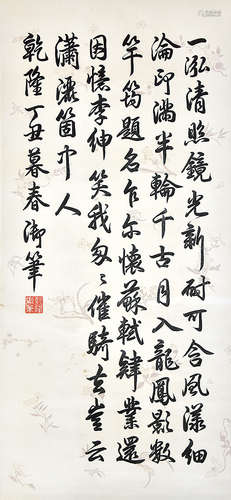 一泓清照鏡光新耐可含風漾細
淪印滿半輪千古月入龍鳳影數
竿筠題名乍尔懷蘇軾肄業還
因憶李紳笑我匆匆催騎去豈云
瀟灑箇中人
乾隆丁丑暮春御筆